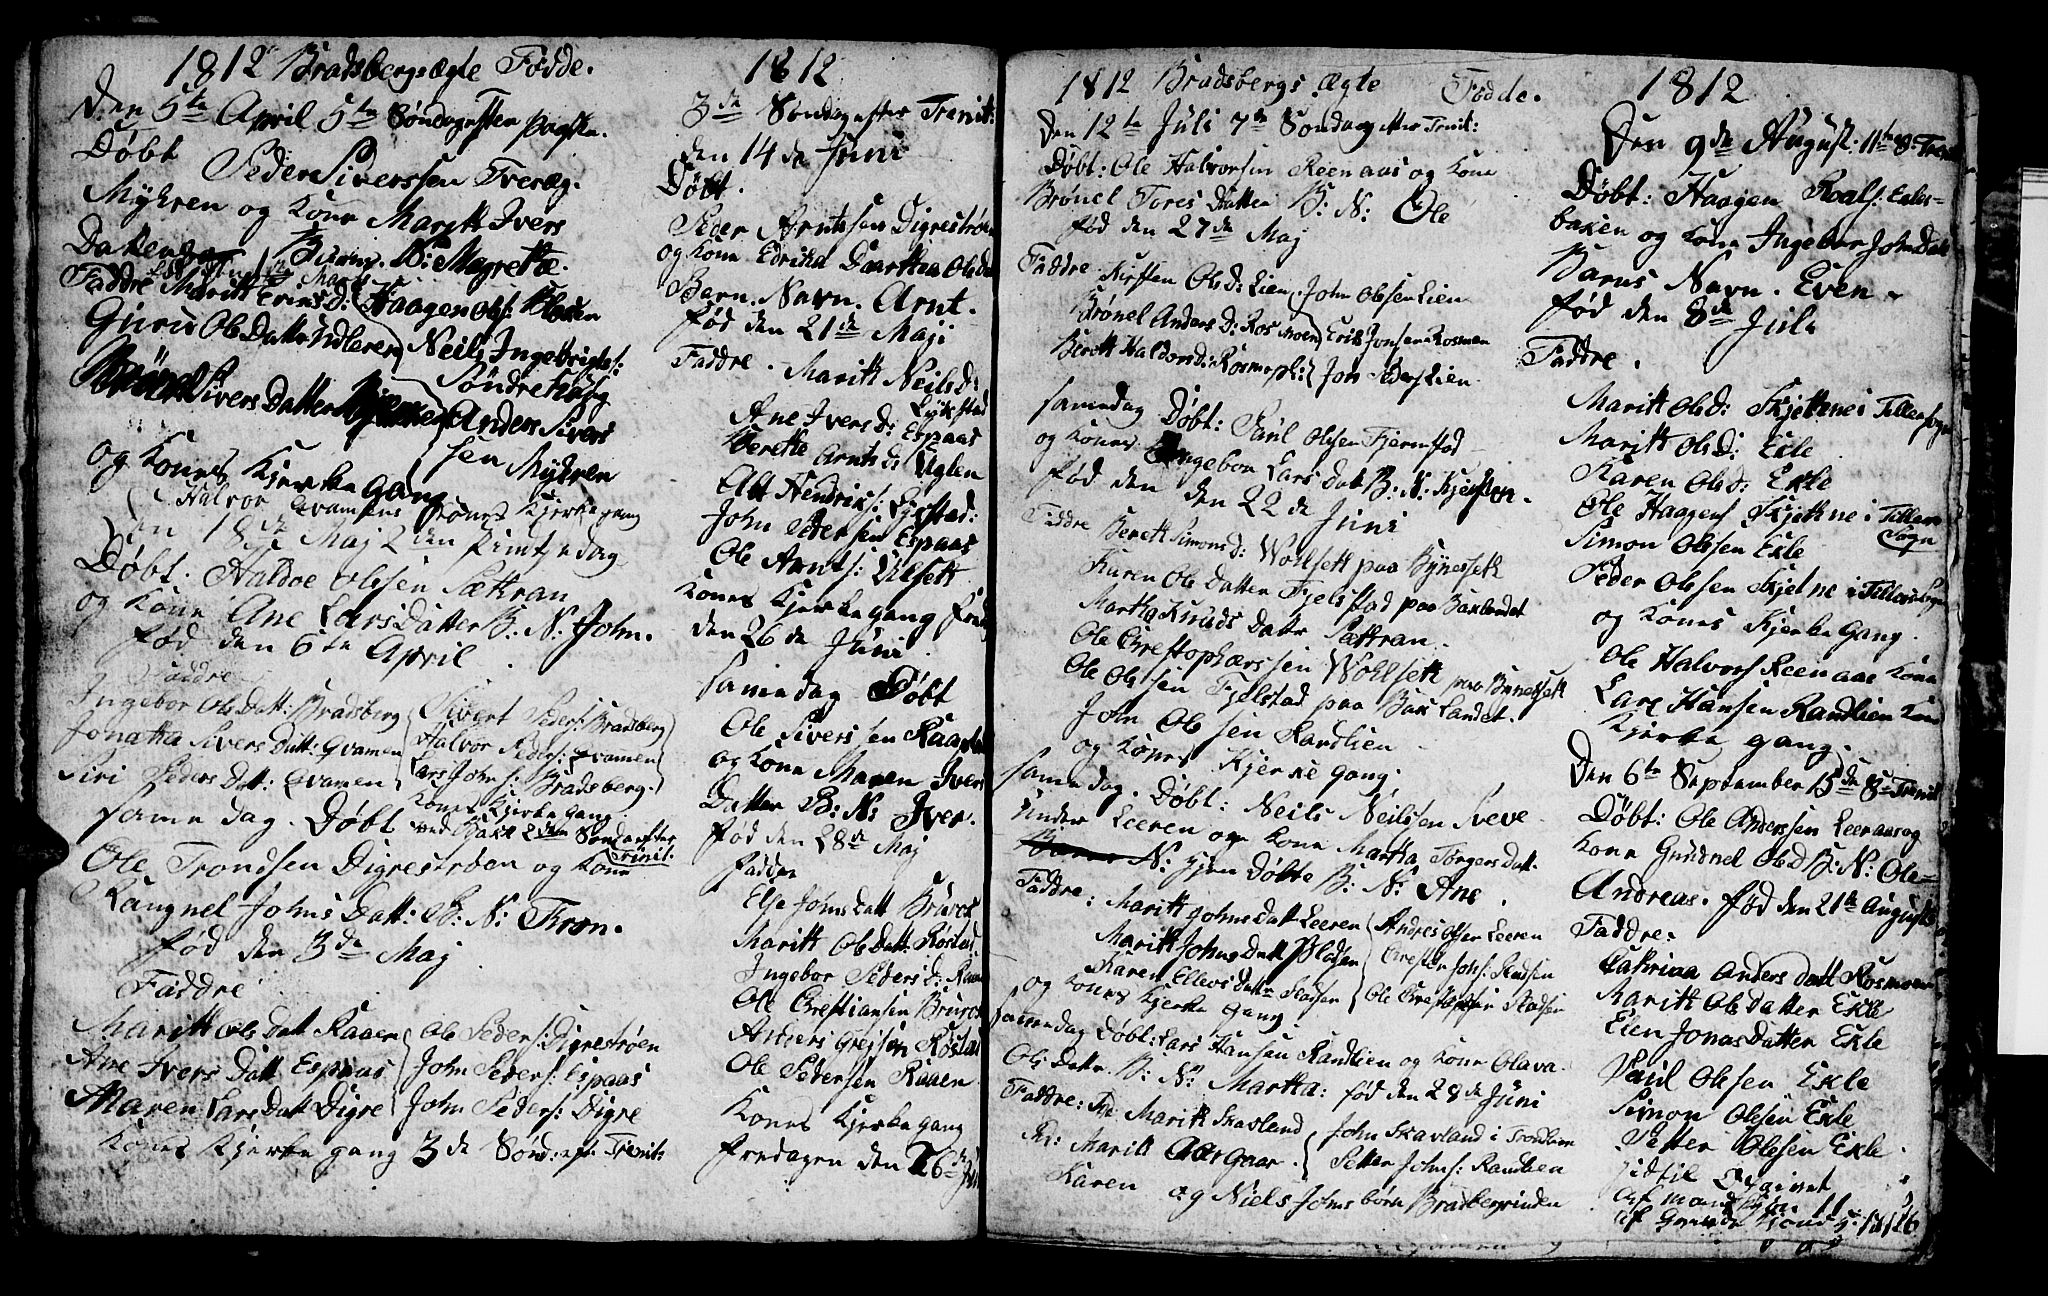 1812 Bradsbergs Ægte Fødde.
Den 5te April 5te Søndag efter paaske
Døbt
Peder Siverssen Tveræg.
Myhren og Kone Maritt Ivers
Datter Barns N: Magrethe.
Faddre Maritt Evensd: Haagen Ols:
Guru Ols Datter Neils Ingebrigts:
Sivers Datter Anders Sivers
sen Myhren
og Kones Kjerke gang
Halvor Qvamens Kones Kjerke gang
Den 18de Maj 2den Pintzedag
Døbt. Haldoe Olssen Sættran
og Kone Ane LarsDatter B: N: John.
fød den 6te April
Faddre
Ingebor Ols Datt: Bradsberg Sivert Peders: Bradsberg
Jonetta Sivers Datt: Qvamen Halvor Peders: Qvamen
Siri Peders Datt: Qvamen Lars Johns: Bradsberg.
Kones Kjerke gang
Same dag. Døbt 2den Sønd efter
Trinit.
Ole Trondsen Digrestrøen og Kone
Rangnel Johns Datt: B: N: Tron.
fød den 3de Maj
Faddre
Maritt Ols Datt Raaen Ole Peders: Digrestrøen
Ane Ivers Datt Espaas John Peders: Espaas
Maren Lars Datt Digre John Peders: Digre
Kones Kjerke gang 3de Sønd: ef: Trenit:
1812
3de Søndag efter Trenit:
den 14de Juni
Døbt.
Peder Arntssen Digrestrøen
og Kone Edrika Dorthea Ols
Barn. Navn. Arnt.
fød den 21de Maji
Faddre. Maritt Neils D:
Lykstad
Ane Ivers D: Espaas
Berette Arnts D: Uglen
Alt Hendriks: Lykstad:
John Pedersen Espaas
Ole Arnts: Ulsett
Kones Kjerke gang
den 26de Juni
Same dag Døbt
Ole Siverssen Raaen
og Kone Maren Ivers
Datter B: N: Iver.
fød den 28de Maj
fadder
Else Johns Datt Brurok
Maritt Ols Datt: Røstad
Ingebor Peders D: Raaen
Ole Chrestiansen Brurok
Anders Grejsen Røstad
Ole Pedersen Raaen
Kones Kjerke gang
fredagen den 26de
1812 Bradsbergs Ægte Fødde.
Den 12te Juli 7de Søndag efter Trenit:
Døbt: Ole Halvorsen Reenaas og Kone
Brønel Tores Datter B: N: Ole
fød den 27de Maj
Faddre Kirsten Ols D: Lien John Olsen Lien
Brønel Anders D: Rosmoen Erik Jonsen Rosmoen
Beritt Haldors D: Jon Peders: Lien
samedag Døbt: Paul Olssen Fjeremstad
og Kones Ingebor Lars Datt B: N: Kjersten.
fød den den 22de Juni
Faddre Berett Simons D: Wollsett paa Bynessett
Karen Ole Datter Fjelstad paa Baklandet
Martha Knuds Datter Sættran.
Ole Chrestophærssen Wollsett paa Bynessett
Ole Olssen Fjelstad paa Baklandet.
John Olssen Randlien
og Kones Kjerke gang.
samedag. Døbt: Neils Neilssen Reve
under Leeren og Kone Martha Torgers Datt.
N: hjem Døbte B: N: Ane.
Faddre: Maritt Johns Datt Leeren Andres Olsen Leeren
Maritt Johns Datt Chresten Johs:
Karen Ellevs Datter Ole Chrestophersen
og Kones Kjerke gang
samedag Døbt: Lars Hansen Randlien og Kone Olava
Ols Datter. B: N: Martha: fød den 28de Juni
Faddre: Maritt Skavland John Skavland i Trondhiem
Maritt Aasgaar. Petter Johns: Randlien
Karen og Niels Johns børn Bradbergrinden
1812
Den 9de August: 11te S: Trenit
Døbt: Haagen Roals: Ekles-
baken og Kone Ingebor Johns Datt
Barns Navn. Even.
fød den 8de Juli
Faddre.
Maritt Ols D: Skjettne i Tillersogn
Maritt Ols D: Ekle
Karen Ols D: Ekle
Ole Haagens Skjettne i Tillers
Sogn
Simon Olssen Ekle
Peder Olssen Skjetne i Tillersogn
og Kones Kjerke gang.
Ole Halvors Reenaas Kone
Lars Hansen Randlien Kone
Kjerke gang.
Den 6te September 15de S: Trenit
Døbt: Ole Anderssen Leeraas og
Kone Gunnel Ols D B: N: Ole-
Andreas. fød den 21te August
Faddre:
Cathrina Anders Datt Rosmoen
Maritt Ols Datter Ekle
Elen Jonas Datter Ekle
Paul Olessen Ekle
Simon Olssen Ekle
Petter Olessen Ekle.